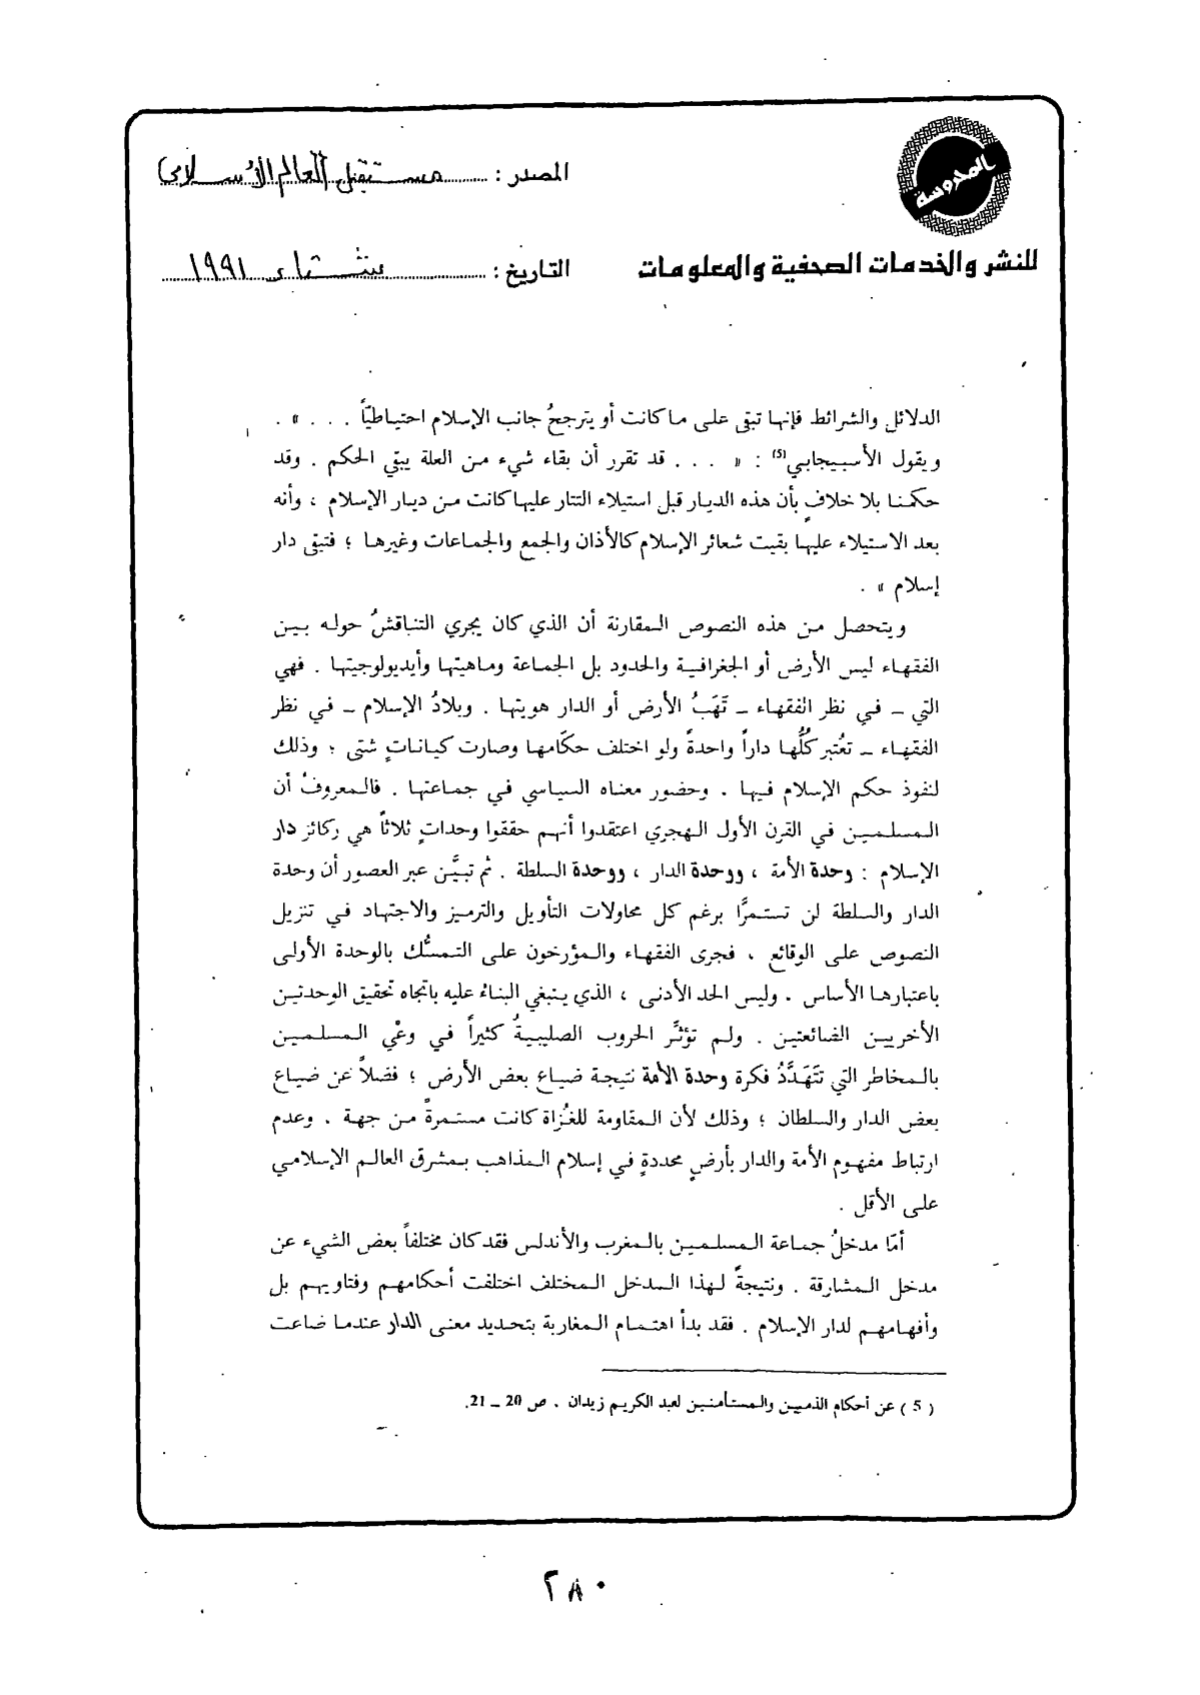 المحروسة
المصدر : مستقبل العالم الإسلامي
للنشر والخدمات الصحفية والمعلومات
التاريخ : شتاء ١٩٩١
الدلائل والشرائط فإنها تبقى على ما كانت أو يترجحُ جانب الإسلام احتياطيّاً . . . » .
ويقول الأسبيجابي(5) : « . . . قد تقرر أن بقاء شيء من العلة يبقي الحكم . وقد
حكمنا بلا خلافٍ بأن هذه الديار قبل استيلاء التتار عليها كانت من ديار الإسلام ، وأنه
بعد الاستيلاء عليها بقيت شعائر الإسلام كالأذان والجمع والجماعات وغيرها ؛ فتبقى دار
إسلام » .
ويتحصل من هذه النصوص المقارنة أن الذي كان يجري التناقشُ حوله بين
الفقهاء ليس الأرض أو الجغرافية والحدود بل الجماعة وماهيتها وأيديولوجيتها . فهي
التي ـ في نظر الفقهاء ـ تَهَبُ الأرض أو الدار هويتها . وبلادُ الإسلام ـ في نظر
الفقهاء ـ تعُتبر كُلُّها داراً واحدةً ولو اختلف حكّامها وصارت كياناتٍ شتى ؛ وذلك
لنفوذ حكم الإسلام فيها . وحضور معناه السياسي في جماعتها . فالمعروفُ أن
المسلمين في القرن الأول الهجري اعتقدوا أنهم حققوا وحداتٍ ثلاثاً هي ركائز دار
الإسلام : وحدة الأمة ، ووحدة الدار ، ووحدة السلطة . ثم تبيَّن عبر العصور أن وحدة
الدار والسلطة لن تستمرَّا برغم كل محاولات التأويل والترميز والاجتهاد في تنزيل
النصوص على الوقائع ، فجرى الفقهاء والمؤرخون على التمسُّك بالوحدة الأولى
باعتبارها الأساس . وليس الحد الأدنى ، الذي ينبغي البناءُ عليه باتجاه تحقيق الوحدتين
الأخريين الضائعتين . ولم تؤثِّر الحروب الصليبيةُ كثيراً في وعْي المسلمين
بالمخاطر التي تَتَهَدَّدُ فكرة وحدة الأمة نتيجة ضياع بعض الأرض ؛ فضلاً عن ضياع
بعض الدار والسلطان ؛ وذلك لأن المقاومة للغُزاة كانت مستمرةً من جهة . وعدم
ارتباط مفهوم الأمة والدار بأرضٍ محددةٍ في إسلام المذاهب بمشرق العالم الإسلامي
على الأقل .
أمّا مدخلُ جماعة المسلمين بالمغرب والأندلس فقد كان مختلفاً بعض الشيء عن
مدخل المشارقة . ونتيجةً لهذا المدخل المختلف اختلفت أحكامهم وفتاويهم بل
وأفهامهم لدار الإسلام . فقد بدأ اهتمام المغاربة بتحديد معنى الدار عندما ضاعت
( 5 ) عن أحكام الذميين والمستأمنين لعبد الكريم زيدان . ص 20 ـ 21.
٢٨٠